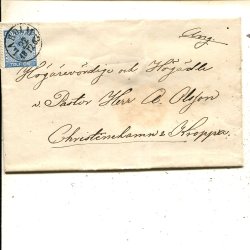 Ang.
Högärevördige och Högädle
Pastor Herr A. Olsson
Christinehamn & Kroppa.